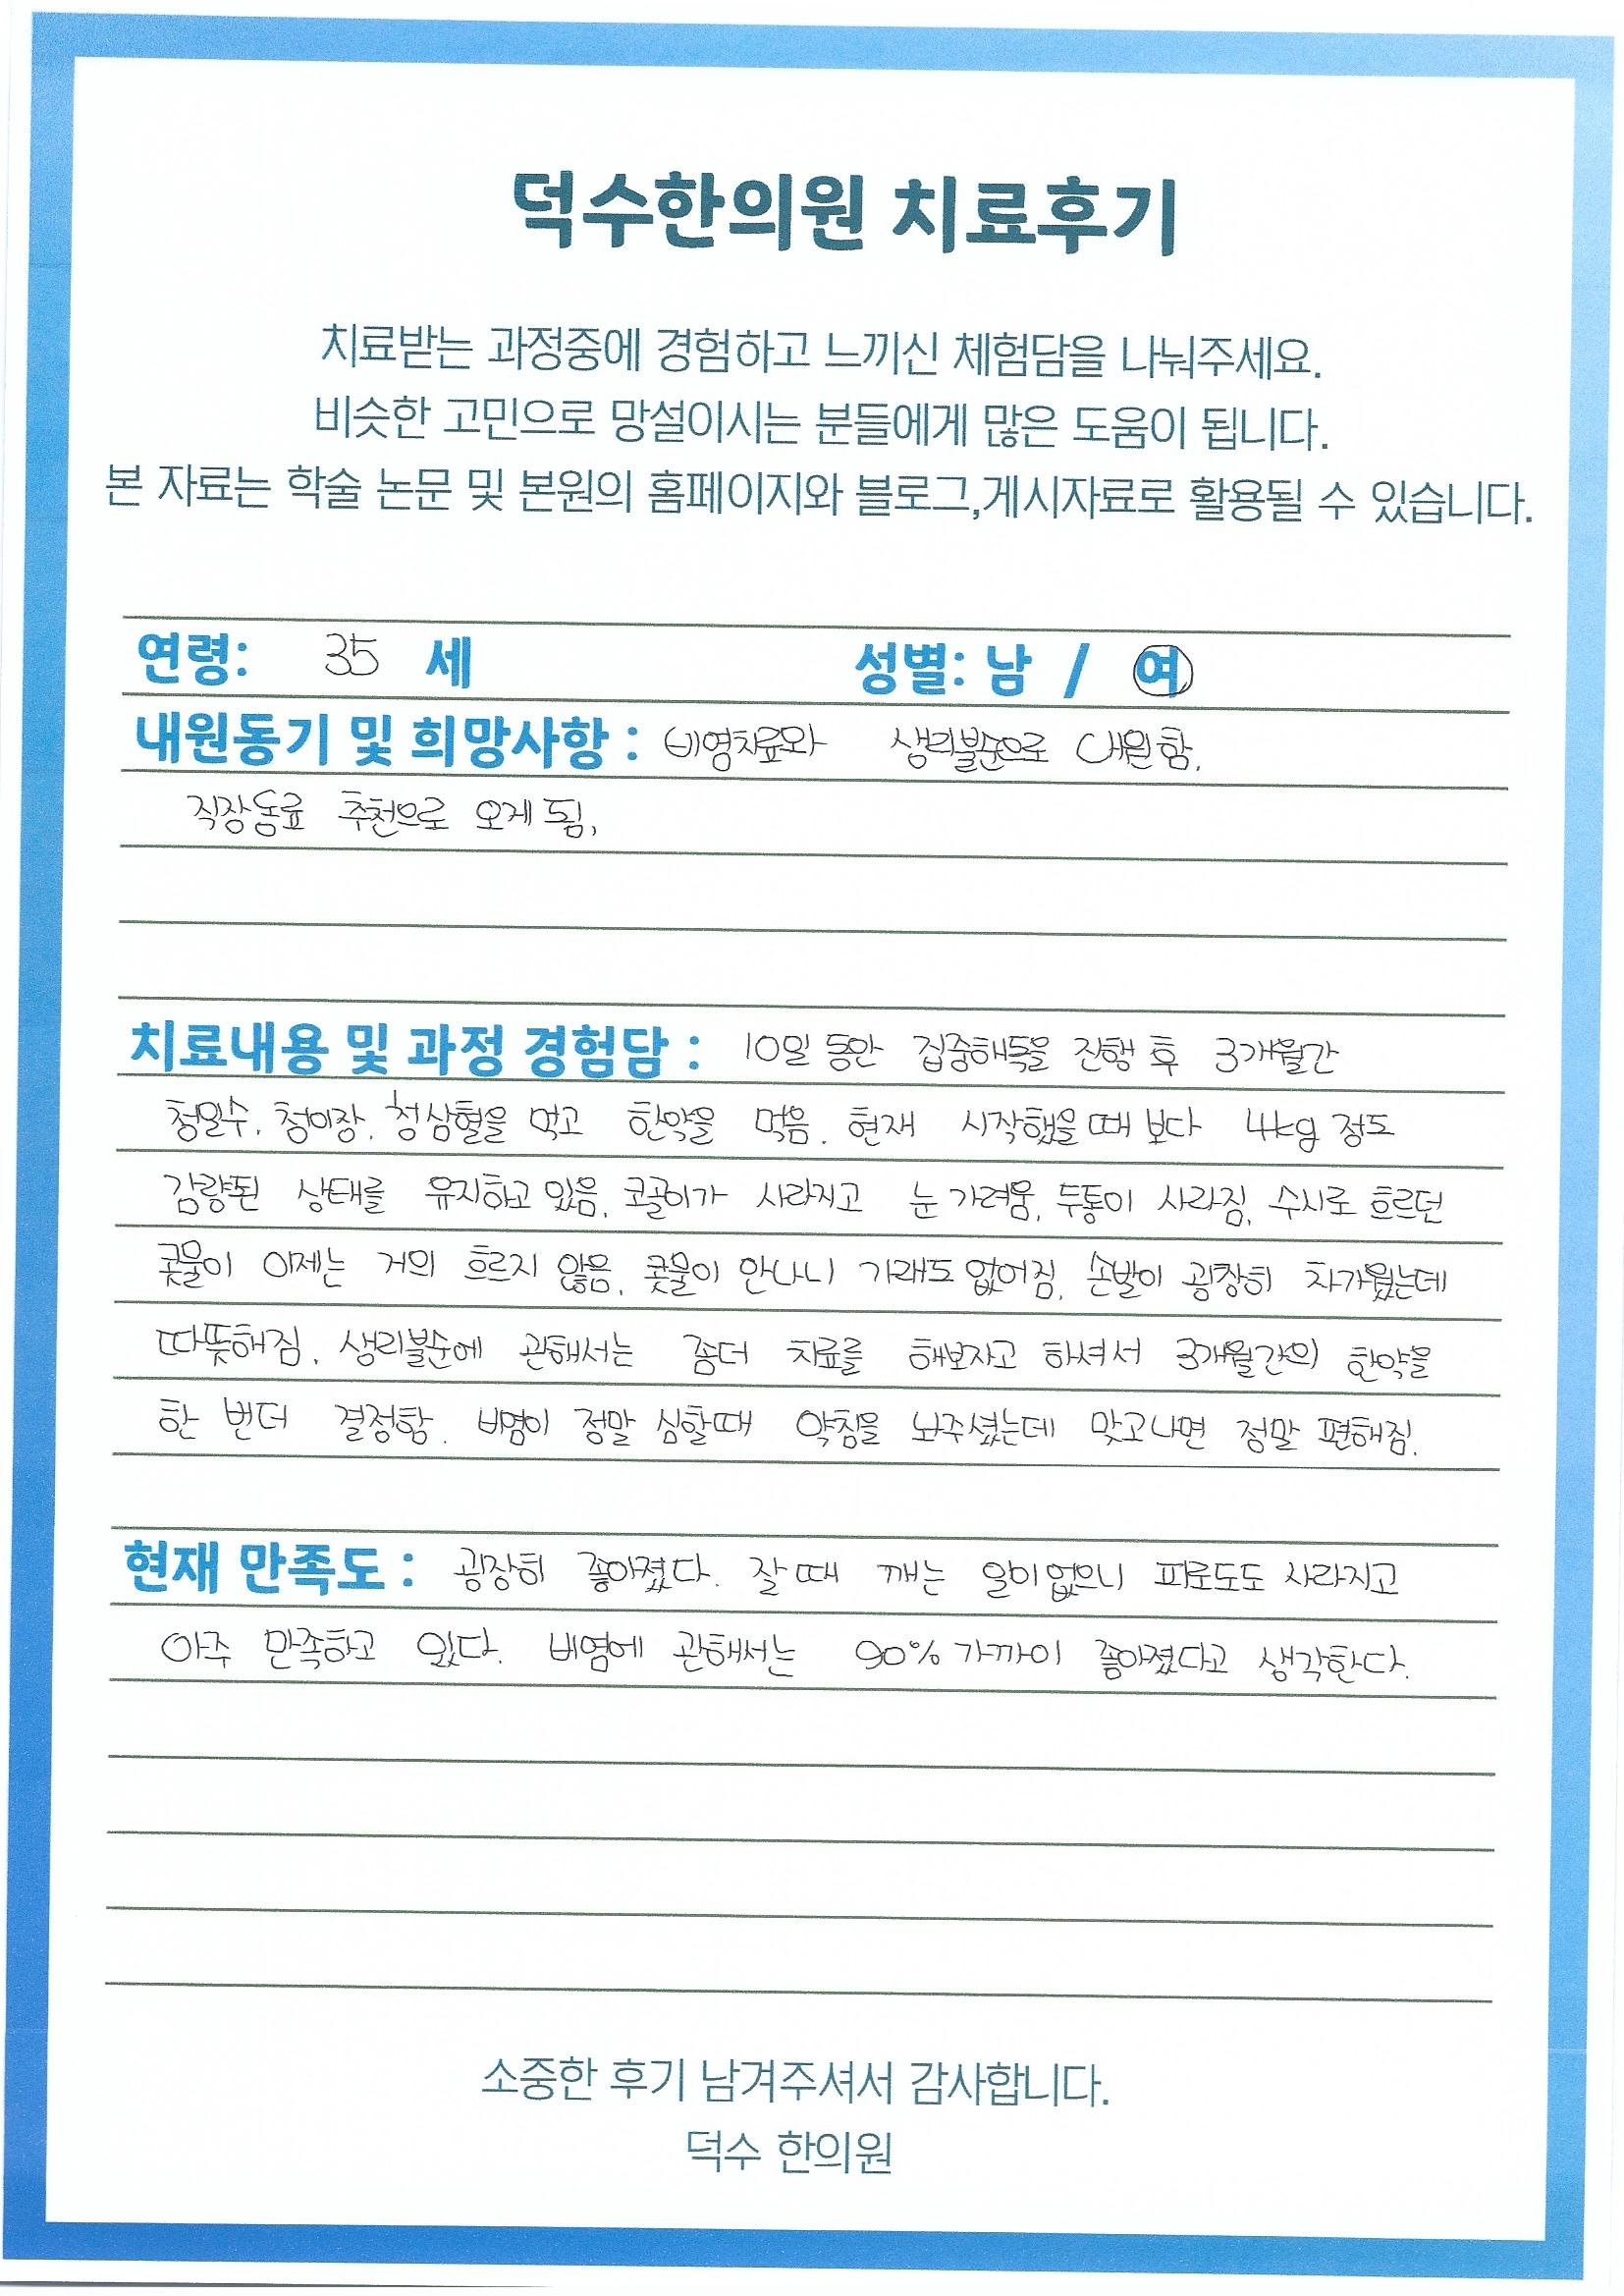 덕수한의원 치료후기
치료받는 과정중에 경험하고 느끼신 체험담을 나눠주세요.
비슷한 고민으로 망설이시는 분들에게 많은 도움이 됩니다.
본 자료는 학술 논문 및 본원의 홈페이지와 블로그,게시자료로 활용될 수 있습니다.
연령: 35 세 성별: 남 / 여
내원동기 및 희망사항 : 비염치료와 생리불순으로 내원함.
직장동료 추천으로 오게 됨.
치료내용 및 과정 경험담 : 10일 동안 집중해독을 진행 후 3개월간
청일수. 청이장. 청삼혈을 먹고 한약을 먹음. 현재 시작했을때 보다 4kg 정도
감량된 상태를 유지하고 있음. 코골이가 사라지고 눈 가려움, 두통이 사라짐. 수시로 흐르던
콧물이 이제는 거의 흐르지 않음. 콧물이 안나니 가래도 없어짐. 손발이 굉장히 차가웠는데
따뜻해짐. 생리불순에 관해서는 좀더 치료를 해보자고 하셔서 3개월간의 한약을
한 번더 결정함. 비염이 정말 심할때 약침을 놔주셨는데 맞고나면 정말 편해짐.
현재 만족도 : 굉장히 좋아졌다. 잘 때 깨는 일이 없으니 피로도도 사라지고
아주 만족하고 있다. 비염에 관해서는 90% 가까이 좋아졌다고 생각한다.
소중한 후기 남겨주셔서 감사합니다.
덕수 한의원